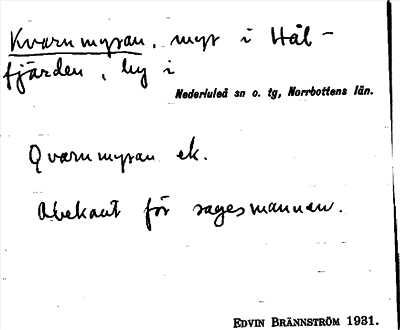 Kvarnmyran, myr i Hål-
fjärden, by i
Nederluleå sn o. tg, Norrbottens län.
Qvarnmyran ek.
Obekant för sagesmannen.
EDVIN BRÄNNSTRÖM 1931.